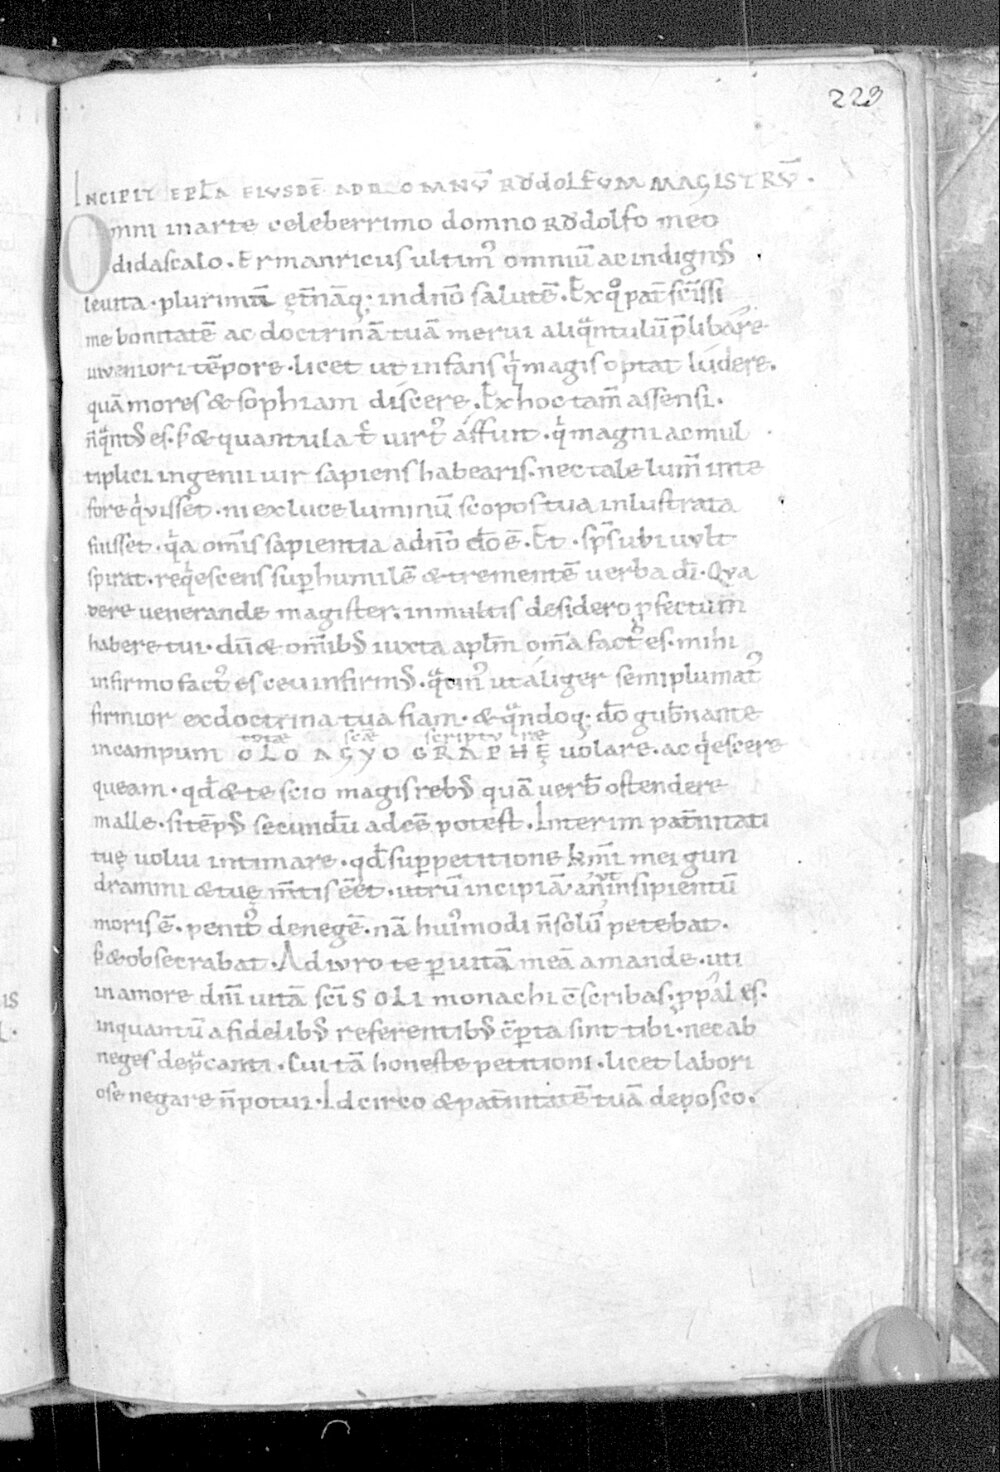 223
INCIPIT EPLA EIUSDE AD DOMNŪ RODOLFUM MAGISTRŪ.
Omni in arte celeberrimo domno Rodolfo meo
didascalo. Ermanricus ultim' omniū ac indign'
levita. plurimā ęt̄nāq; in dn̄o salutē. Ex q° pat̄ sc̄issi
me bonitatē ac doctrinā tuā merui aliq̄ntulū p̄libare
iuveniori tēpore. licet ut infans q' magis optat ludere.
quā mores & sophiam discere. Ex hoc tam̄ assensi.
es. & quantula virt' assunt. q' magni ac mul
tiplici ingenii vir sapiens habearis. nec tale lum̄ in te
fore q'visset. ni ex luce luminū scopos tua inlustrata
fuisset. q'a om̄is sapientia a dn̄o dō ē. Et. sp̄s ubi vult
spirat. req'escens sup humilē & trementē verba dī. Qua
vere venerande magister. in multis desidero pfectum
habere tui. dū & om̄ib; iuxta aplm̄ om̄a fact' es. mihi
infirmo fact' es ceu infirm'. ut aliger semiplumat'
firmior ex doctrina tua fiam. & q̄ndoq; dō gub̄nante
totae scae scripturae
in campum OLO AGYO GRAPHĘ volare. ac q'escere
queam. qd & te scio magis reb; quā verb' ostendere
malle. si tēp' secundū adcē potest. Interim pat̄nitati
tuę volui intimare. qd sup petitione kmi mei gun
drammi & tuę m̄tis eēt. utrū incipiā an insipientū
moris ē. penit' denegē. nā hui'modi n̄ solū petebat.
& obsecrabat. Adiuro te p vitā meā amande. uti
in amore dn̄i vitā sc̄i SOLI monachi c̄scribas.
inquantū a fidelib; referentib; c̄pta sint tibi. nec ab
neges dep̄canti. Cui tā honeste petitioni. licet labori
ose negare n̄ potui. Idcirco & pat̄nitatē tuā deposco.